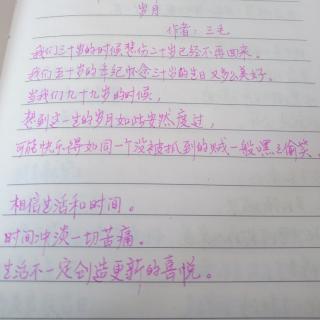 岁月
作者：三毛
我们三十岁的时候悲伤二十岁已经不再回来。
我们五十岁的年纪怀念三十岁的生日又多么美好。
当我们九十九岁的时候，
想到这一生的岁月如此安然度过，
可能快乐得如同一个没被抓到的贼一般嘿嘿偷笑。
相信生活和时间。
时间冲淡一切苦痛。
生活不一定创造更新的喜悦。